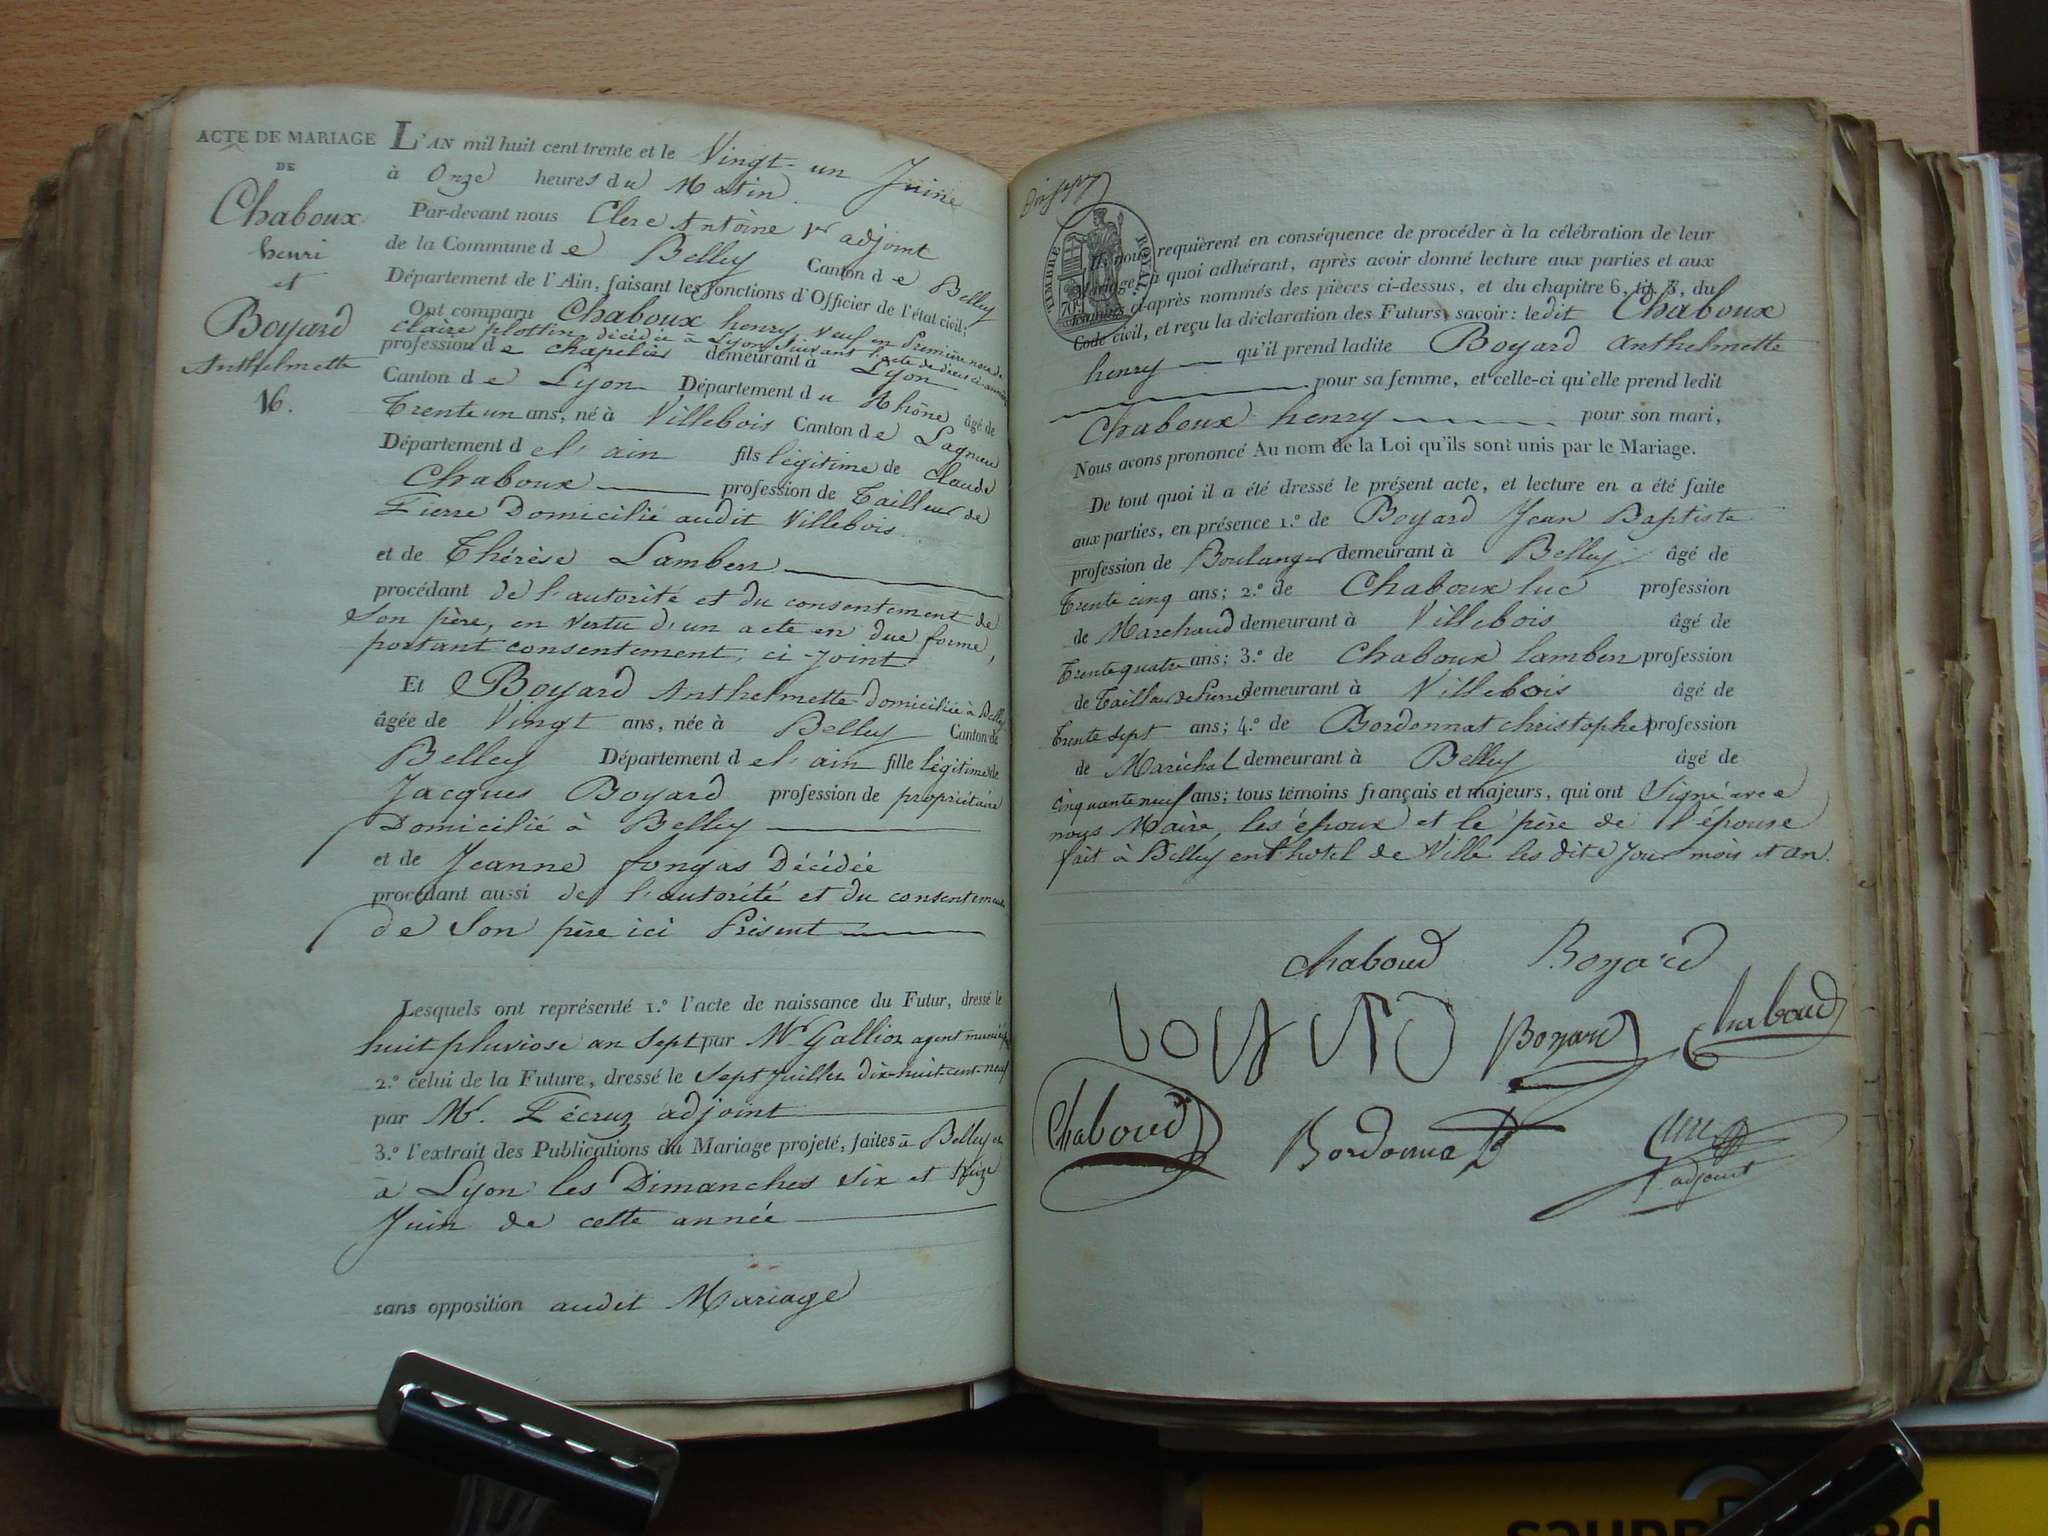 ACTE DE MARIAGE
DE
Chaboux
henri
et
Boyard
Anthelmette
16.
L'AN mil huit cent trente et le Vingt-un Juin
à Onze heures du Matin.
Par-devant nous Clerc Antoine 1er adjoint
de la Commune de Belley Canton de Belley
Département de l'Ain, faisant les fonctions d'Officier de l'état civil;
Ont comparu Chaboux henry, veuf en Première noce de
claire plottin, décédée à Lyon suivant l'acte de décès ci-
profession de chapelier demeurant à Lyon
Canton de Lyon Département du Rhône âgé de
Trente un ans, né à Villebois Canton de Lagnieu
Département de l'ain fils légitime de Claude
Chaboux profession de Tailleur de
Pierre Domicilié audit Villebois.
et de Thérèse Lambert
procédant de l'autorité et du consentement de
Son père, en vertu d'un acte en due forme,
portant consentement, ci-joint
Et Boyard Anthelmette domiciliée à Belley
âgée de Vingt ans, née à Belley Canton de
Belley Département de l'ain fille légitime de
Jacques Boyard profession de propriétaire
Domicilié à Belley
et de Jeanne fongas Décédée
procédant aussi de l'autorité et du consentement
de Son père ici Présent
Lesquels ont représenté 1.º l'acte de naissance du Futur, dressé le
huit pluviose an Sept par Mr Gallioz agent
2.º celui de la Future, dressé le Sept Juillet dix-huit-cent-neuf
par Mr. Técruz adjoint
3.º l'extrait des Publications du Mariage projeté, faites à Belley et
à Lyon les Dimanches Six et treize
Juin de cette année
sans opposition audit Mariage
TIMBRE ROYAL
70
Ils nous requièrent en conséquence de procéder à la célébration de leur
Mariage; à quoi adhérant, après avoir donné lecture aux parties et aux
témoins ci-après nommés des pièces ci-dessus, et du chapitre 6, tit. 5, du
Code civil, et reçu la déclaration des Futurs, savoir: ledit Chaboux
henry qu'il prend ladite Boyard anthelmette
pour sa femme, et celle-ci qu'elle prend ledit
Chaboux henry pour son mari,
Nous avons prononcé Au nom de la Loi qu'ils sont unis par le Mariage.
De tout quoi il a été dressé le présent acte, et lecture en a été faite
aux parties, en présence 1.º de Boyard Jean Baptiste
profession de Boulanger demeurant à Belley âgé de
Trente cinq ans; 2.º de Chaboux luc profession
de Marchand demeurant à Villebois âgé de
Trente quatre ans; 3.º de Chaboux lambert profession
de Tailleur de Pierre demeurant à Villebois âgé de
Trente sept ans; 4.º de Bordonnat christophe profession
de Maréchal demeurant à Belley âgé de
cinquante neuf ans; tous témoins français et majeurs, qui ont Signé avec
nous Maire, les époux et le père de l'épouse
fait à Belley en l'hotel de Ville les dits Jour mois et an.
Chaboud Boyard
boyard Boyard Chaboud
Chaboud Bordonnat
1er adjoint